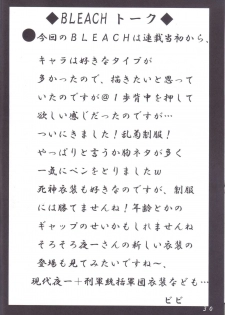 ◆BLEACHトーク◆
●今回のBLEACHは連載当初から、
キャラは好きなタイプが
多かったので、描きたいと思って
いたのですが@1歩背中を押して
欲しい感じだったのですが…
ついにきました!乱菊制服!
やっぱりと言うか胸ネタが多く
一気にペンをとりましたw
死神衣装も好きなのですが、制服
には勝てませんね!年齢とかの
ギャップのせいかもしれませんね
そろそろ夜一さんの新しい衣装の
登場も見てみたいですね~、
現代夜一+刑軍統括軍団衣装なども…
ビビ
30